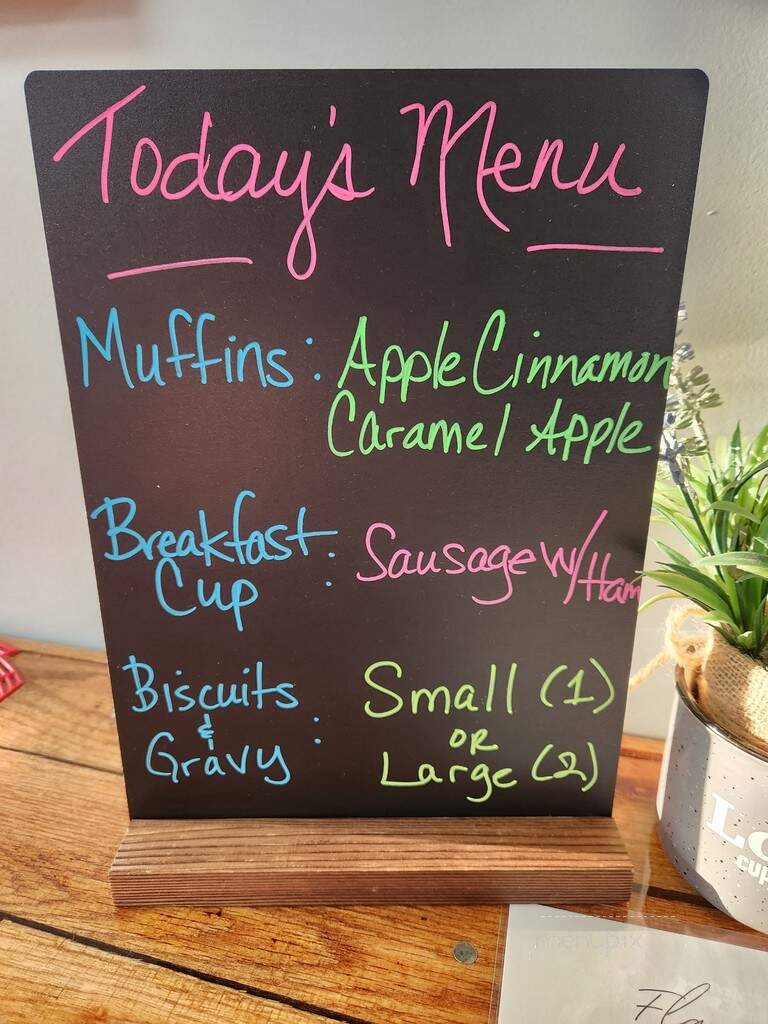 Today's Menu
Muffins: Apple Cinnamon
Caramel Apple
Breakfast Cup: Sausage w/Ham
Biscuits & Gravy: Small (1)
OR
Large (2)
menupix